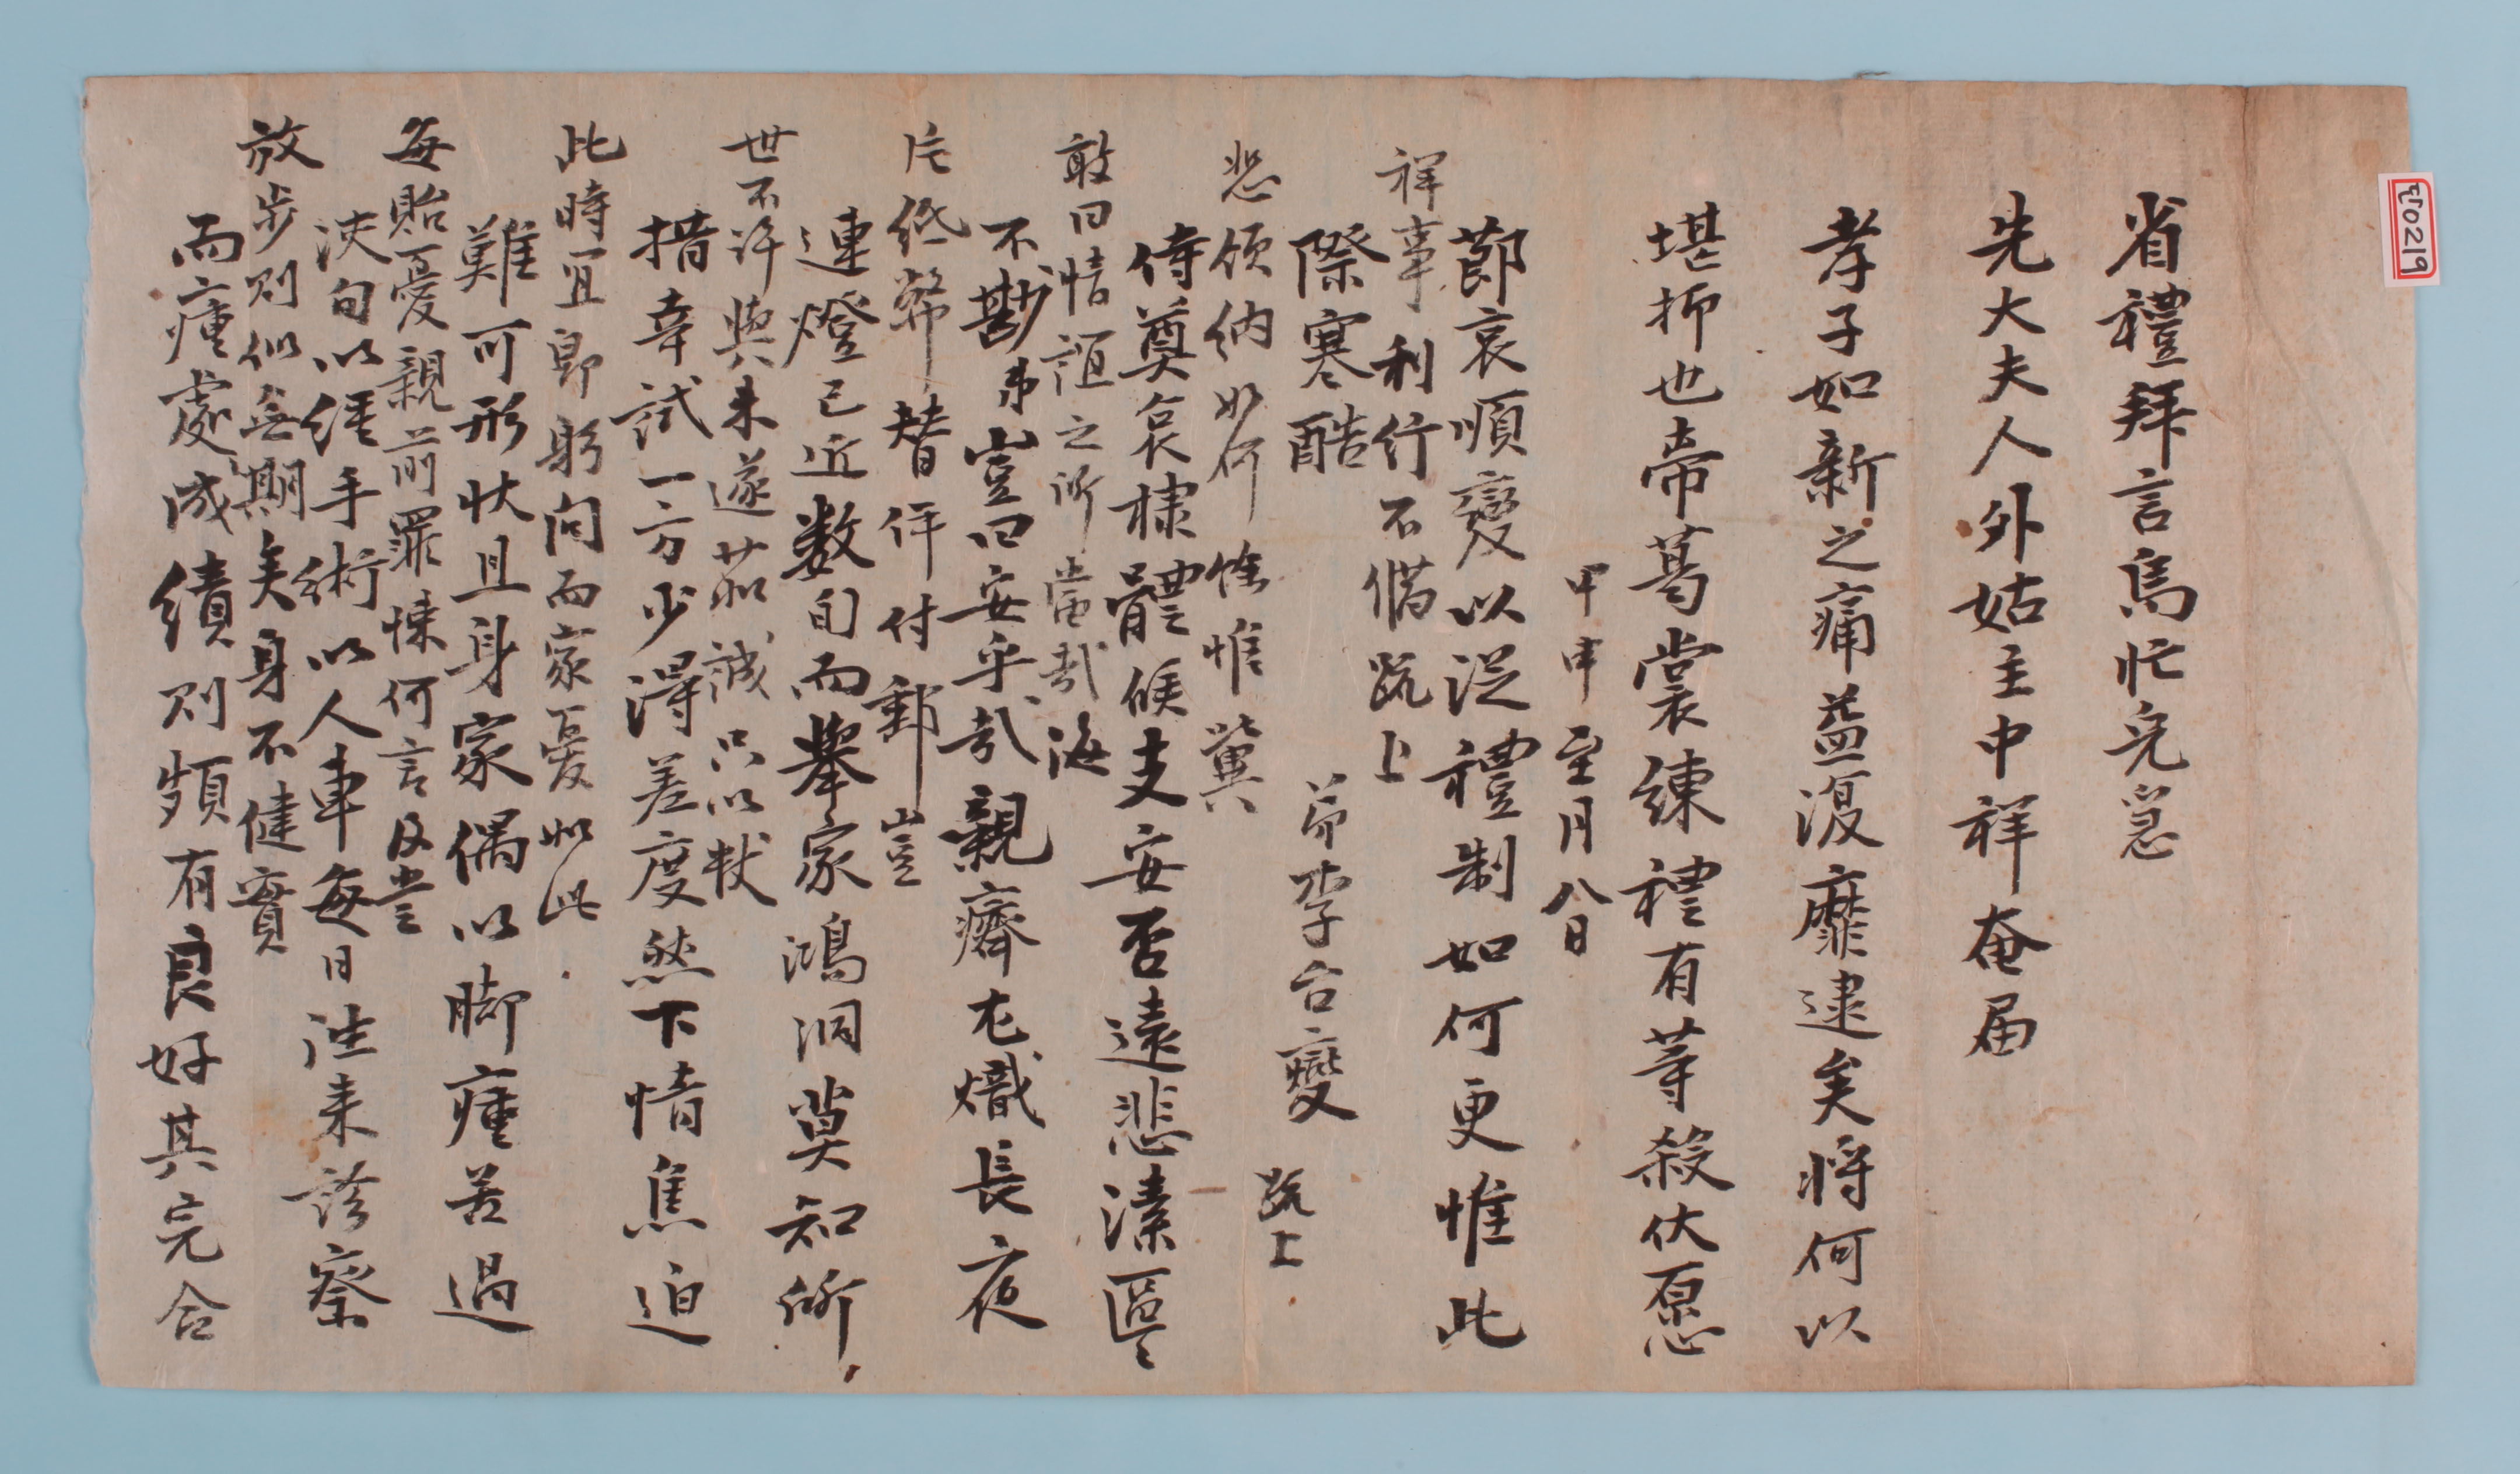 省禮拜言烏忙兎怱
先大夫人外姑主中祥奄屆
孝子如新之痛益復靡逮矣將何以
堪抑也帝葛裳練禮有等殺伏愿
節哀順變以從禮制如何更惟此
際寒酷
侍奠哀棣體候支安否遠悲溱區〻
不勘弟豈曰安乎哉親癠尤熾長夜
連燈已近數旬而擧家鴻洞莫知所
措幸試一方少得差度然下情焦迫
難可形狀且身家偶以脚瘇苦過
浹旬以經手術以人車每日往來診察
而瘇處成績則頗有良好其完合
放步則似無期矣身不健實
每貽憂親前罪悚何言及當
此時宜卽躬向而家憂如此
世不許與未遂茹誠只以狀
片紙幣替伻付郵豈
敢曰情誼之所當哉海
悲領納如何餘惟冀
祥事利行不備疏上
甲申至月八日
弟李台燮 疏上
0219